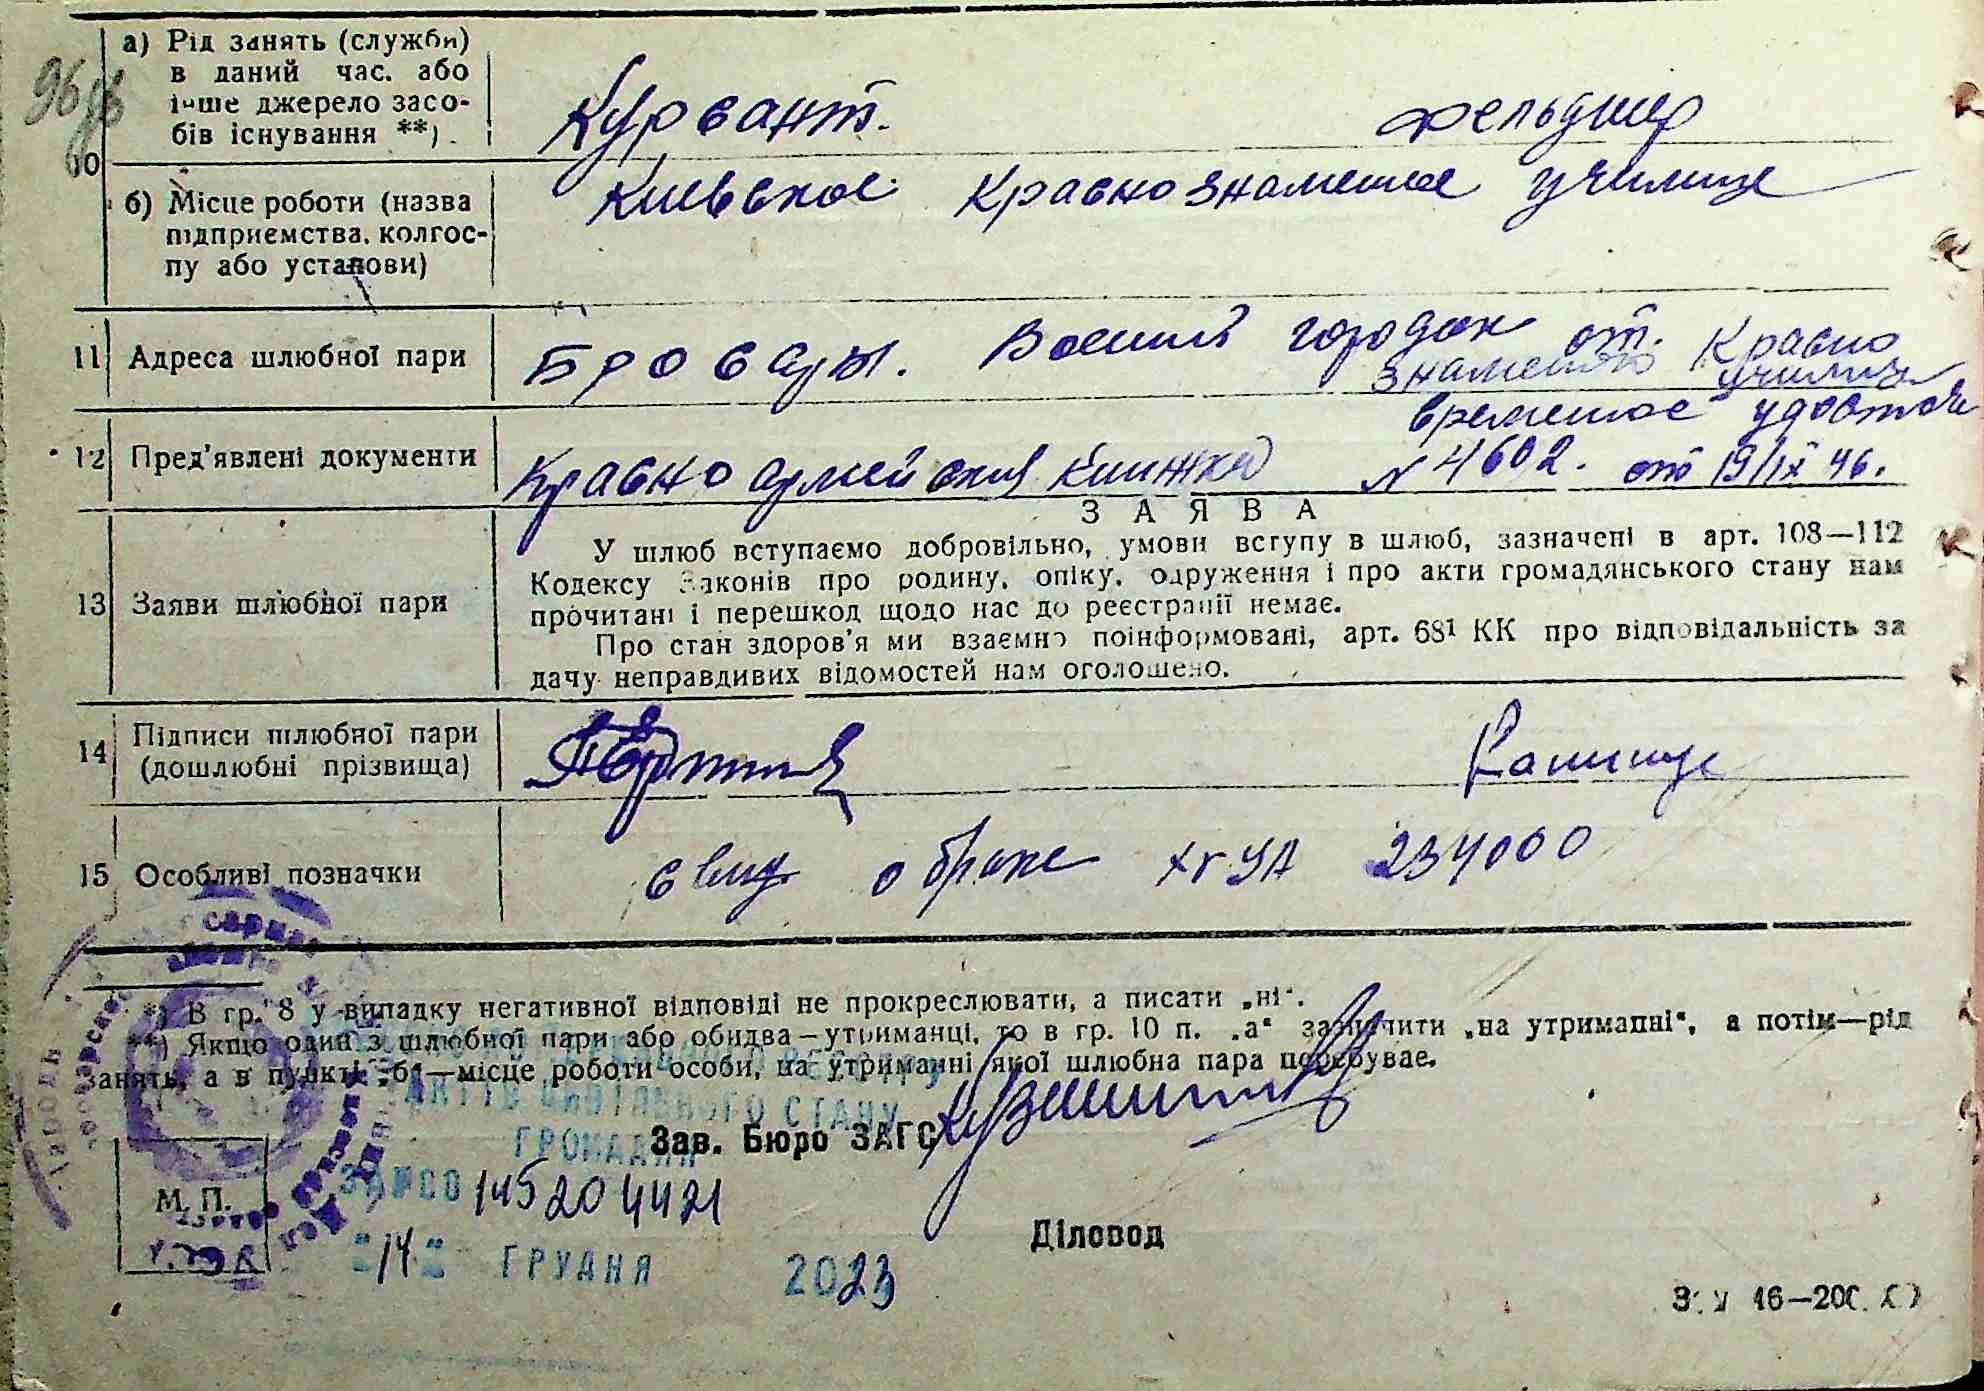 96 зв
10
а) Рід занять (служби)
в даний час. або
інше джерело засо-
бів існування **)
Курсант. фельдшер
б) Місце роботи (назва
підприємства, колгос-
пу або установи)
Киевское Краснознаменное училище
11 Адреса шлюбної пари
Бровары. Военный городок от. Красно
знаменого училища
12 Пред'явлені документи
Красноармейская книжка
временное удостов
№ 4602. от 19/IX 46.
ЗАЯВА
13 Заяви шлюбної пари
У шлюб вступаємо добровільно, умови вступу в шлюб, зазначені в арт. 108—112
Кодексу Законів про родину, опіку, одруження і про акти громадянського стану нам
прочитані і перешкод щодо нас до реєстрації немає.
Про стан здоров'я ми взаємно поінформовані, арт. 68¹ КК про відповідальність за
дачу неправдивих відомостей нам оголошено.
14 Підписи шлюбної пари
(дошлюбні прізвища)
15 Особливі позначки
свид о браке ХГУА 234000
*) В гр. 8 у випадку негативної відповіді не прокреслювати, а писати „ні“.
**) Якщо один з шлюбної пари або обидва—утриманці, то в гр. 10 п. „а“ зазначити „на утриманні“, а потім—рід
занять, а в пункті „б“—місце роботи особи, на утриманні якої шлюбна пара перебуває.
АКТІВ ЦИВІЛЬНОГО СТАНУ
ГРОМАДЯН
Зав. Бюро ЗАГС
145204421
М. П.
Діловод
"14" ГРУДНЯ 2023